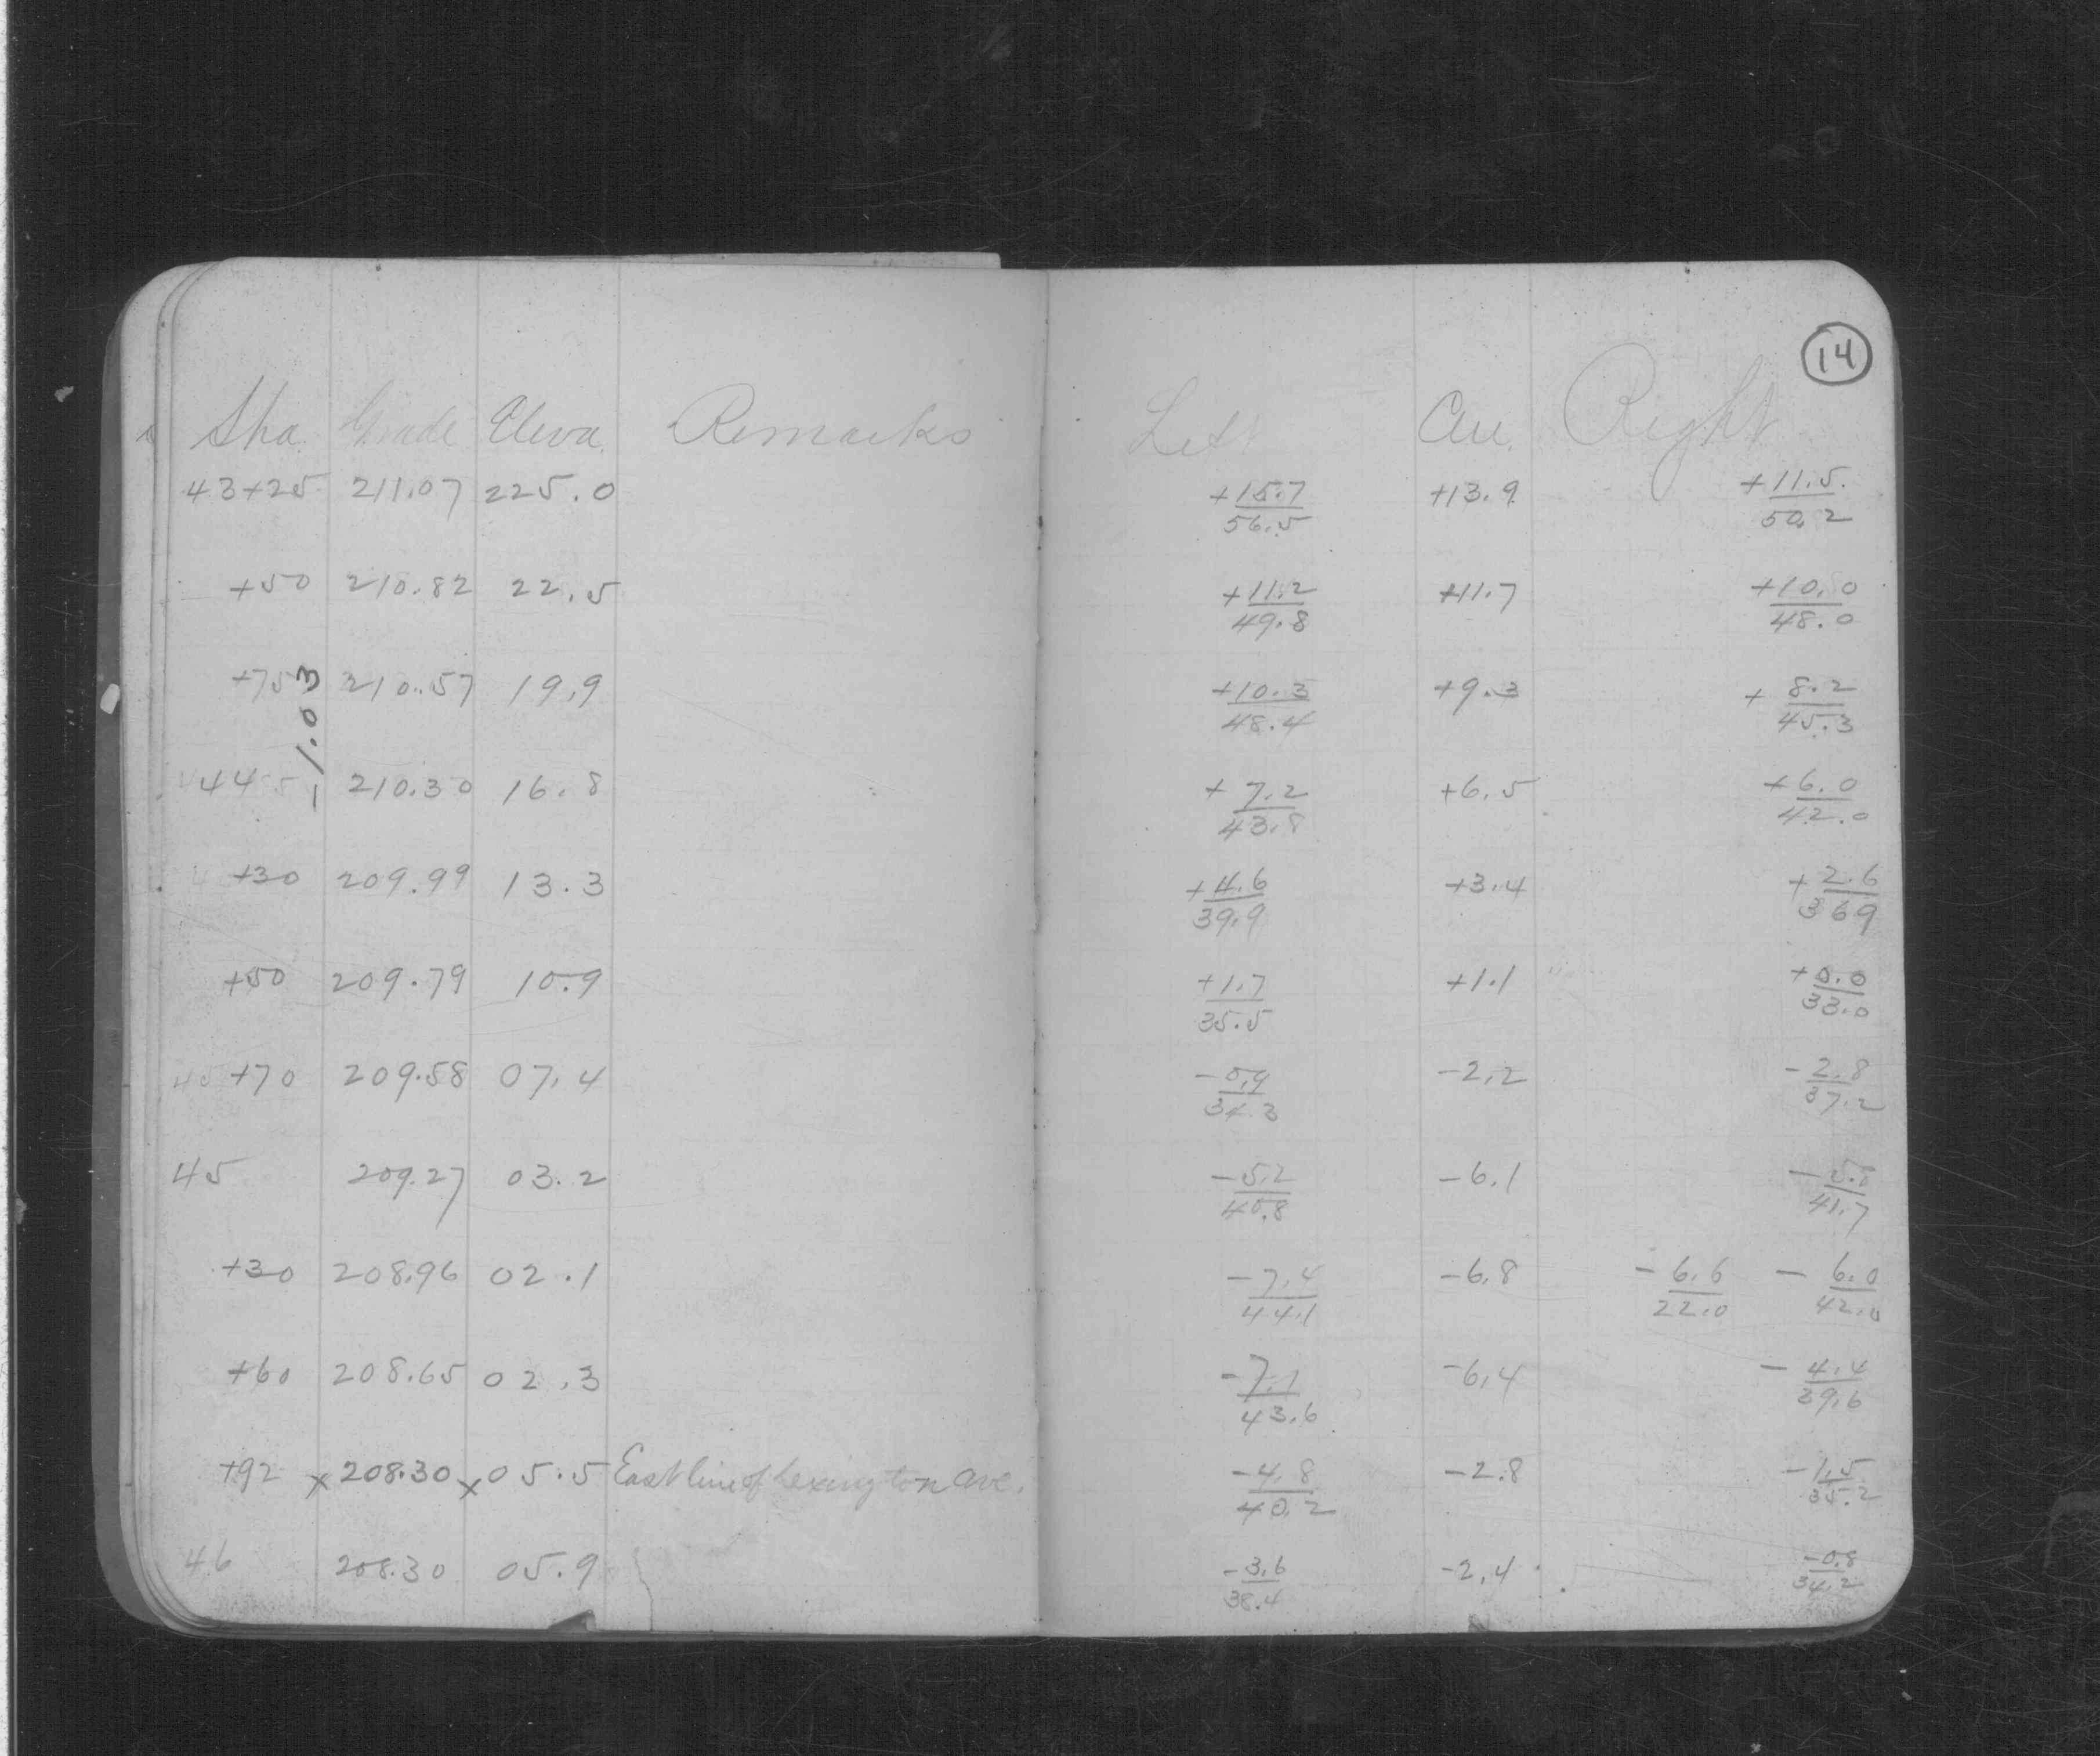 14
Sta. Grade Eleva. Remarks Left Cen. Right
43+25 211.07 225.0 +15.7/56.5 +13.9 +11.5/50.2
+50 210.82 22.5 +11.2/49.8 +11.7 +10.0/48.0
+75 210.57 19.9 +10.3/48.4 +9.3 +8.2/45.3
-1.03
44 210.30 16.8 +7.2/43.8 +6.5 +6.0/42.0
+30 209.99 13.3 +4.6/39.9 +3.4 +2.6/369
+50 209.79 10.9 +1.7/35.5 +1.1 +0.0/33.0
+70 209.58 07.4 -0.9/34.3 -2.2 -2.8/37.2
45 209.27 03.2 -5.2/40.8 -6.1 -5.8/41.7
+30 208.96 02.1 -7.4/44.1 -6.8 -6.6/22.0 -6.0/42.0
+60 208.65 02.3 -7.1/43.6 -6.4 -4.4/39.6
+92 x 208.30 x 05.5 East line of Lexington Ave. -4.8/40.2 -2.8 -1.5/35.2
46 208.30 05.9 -3.6/38.4 -2.4 -0.8/34.2